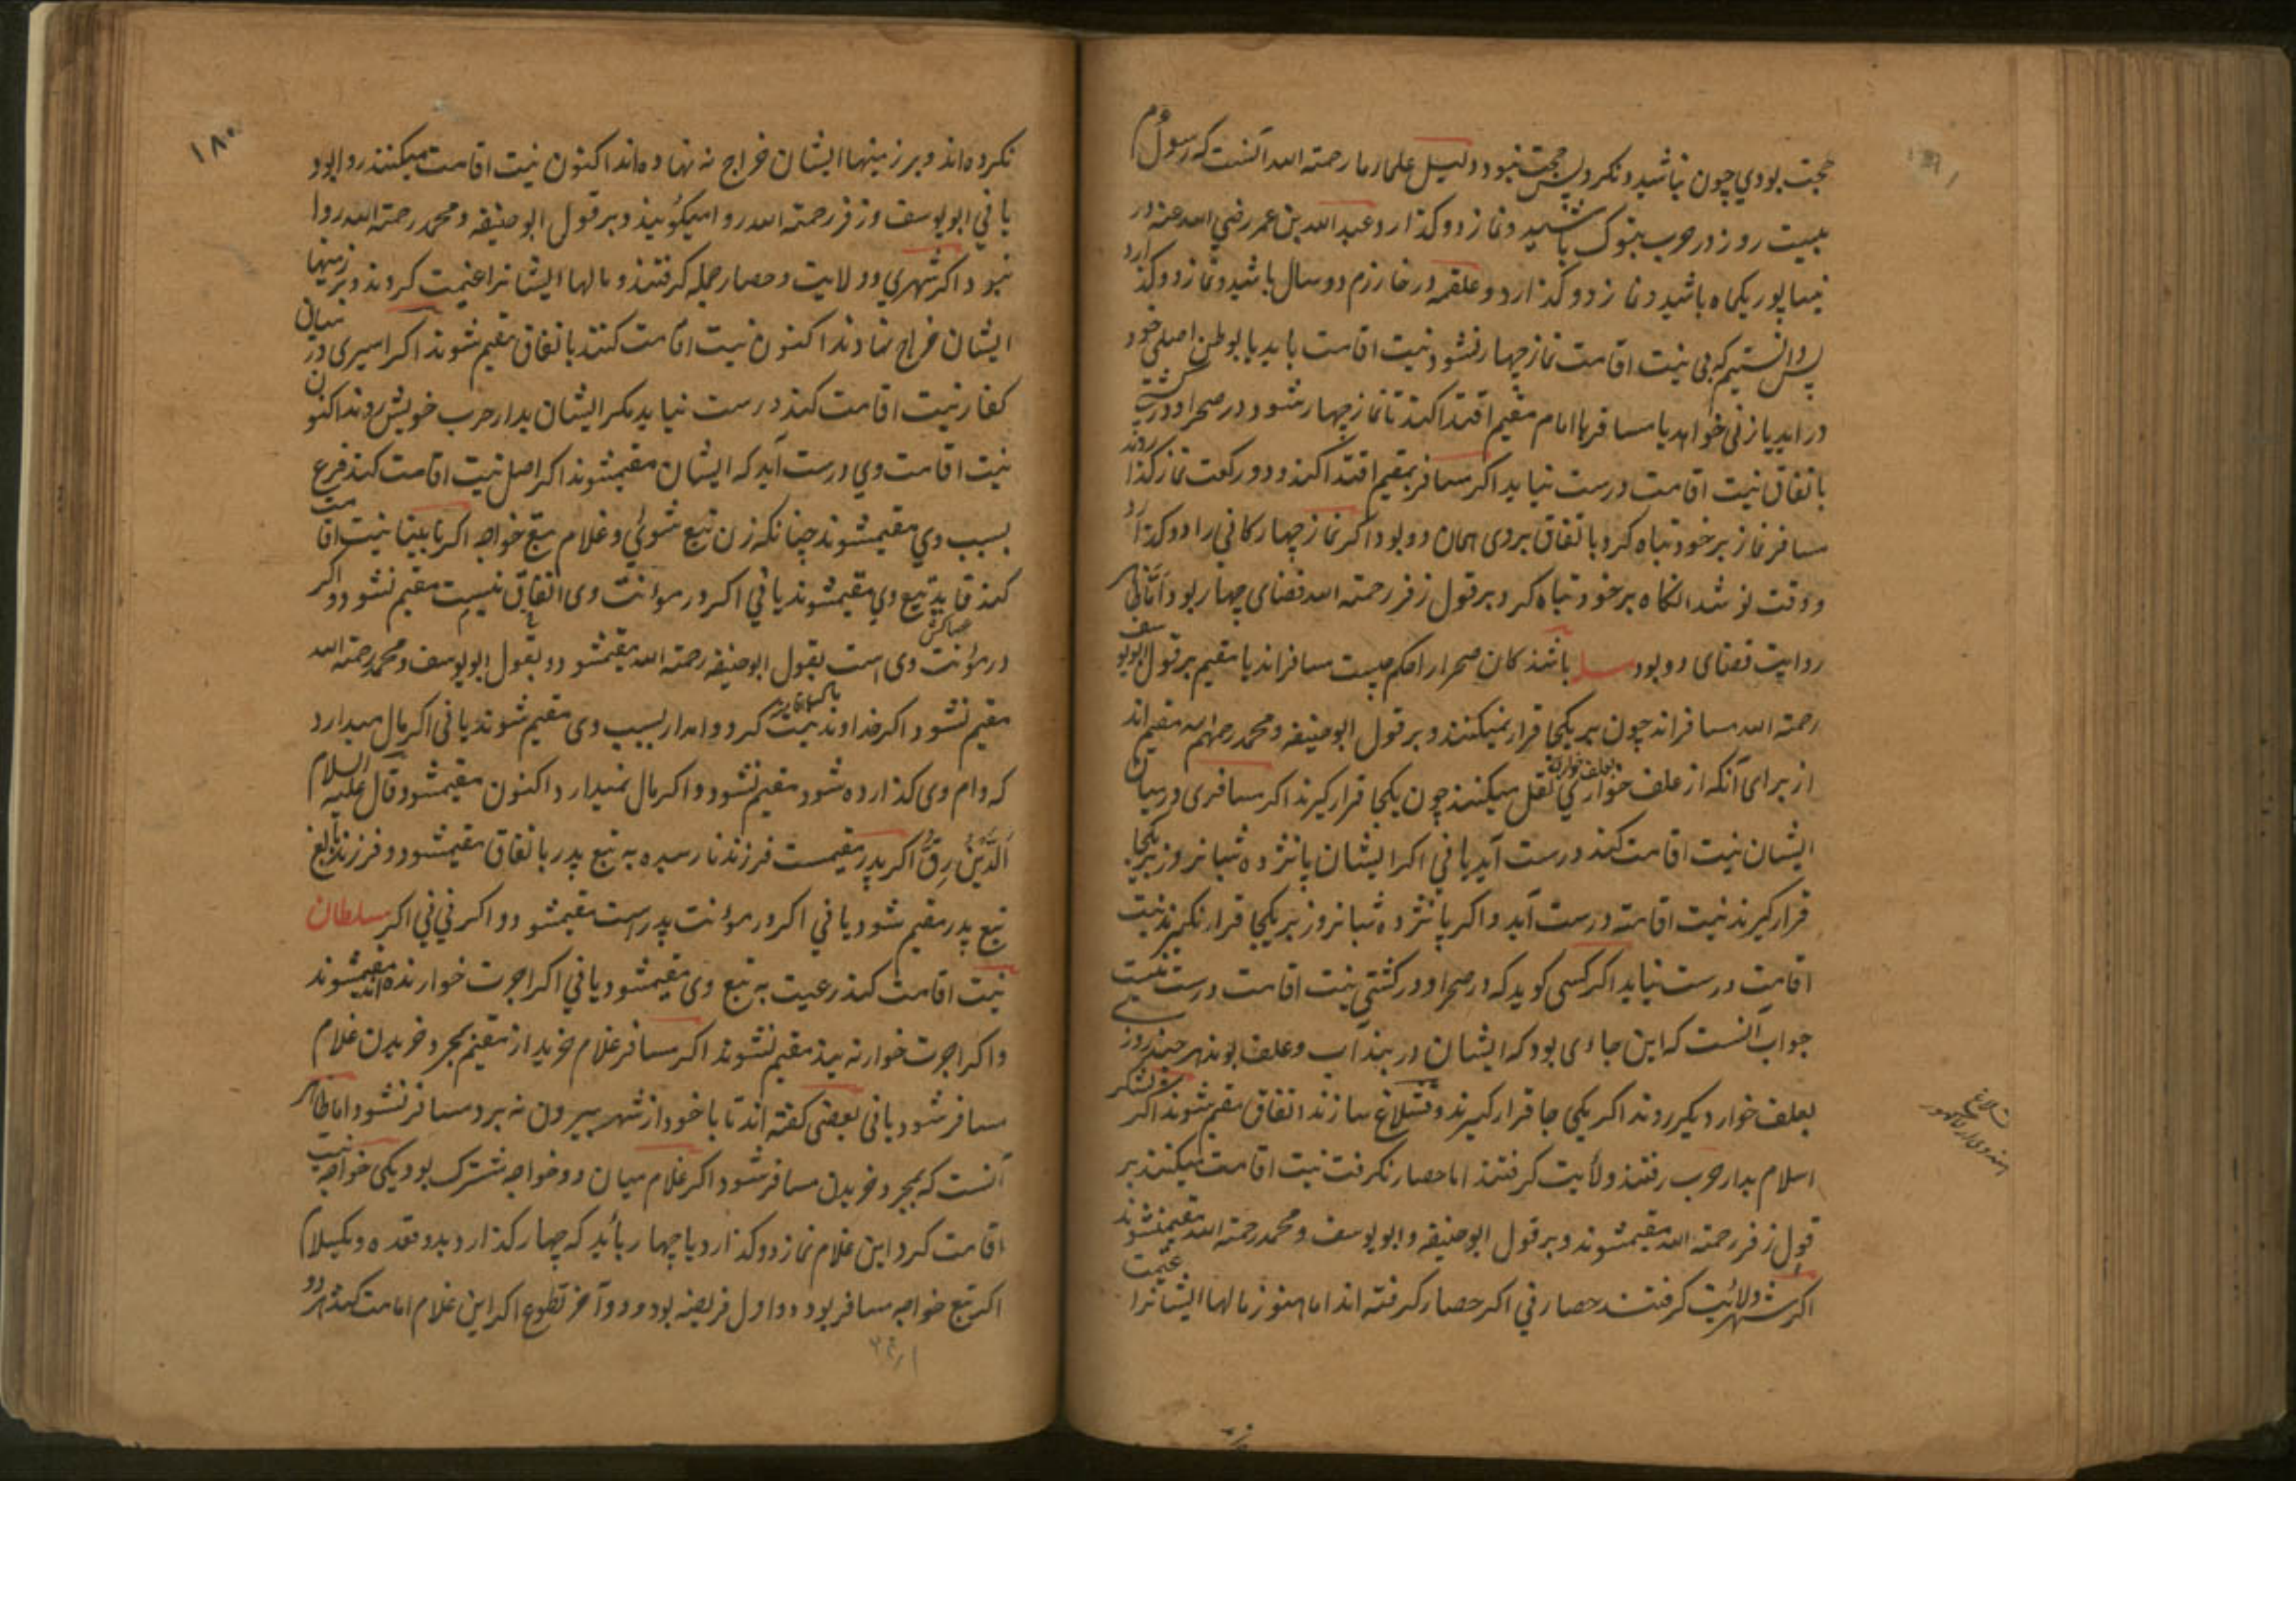 حجت بودي چون نباشید و نکرد پس حجت نبود و دلیل علمار ما رحمته الله آنست که رسول م
بیست روز در حرب بتوک باشید و نماز دو کذارد و عبد الله بن عمر رضي الله عنه در
نیساپور یکماه باشید و نماز دو کذارد و علقمه در خارزم دو سال باشید و نماز دو کذارد
پس دانستیم که بی نیت اقامت نماز چهار نشود نیت اقامت باید یا بوطن اصلی خود
در اید یا زنی خواهد یا مسافر با امام مقیم اقتدا کند تا نماز چهار شود و در صحرا و در کشتی
باتفاق نیت اقامت درست نیاید اکر مسافر بمقیم اقتدا کند و دو رکعت نماز کذاردند
مسافر نماز بر خود تباه کرد باتفاق بروی همان دو بود اکر نماز چهار کانی را دو کذارد
و وقت نو شد انکاه بر خود تباه کرد بر قول زفر رحمته الله قضای چهار بود اما ظاهر
روایت قضای دو بود باشند کان صحرا را حکم چیست مسافراند یا مقیم بر قول ابو یوسف
رحمته الله مسافراند چون بر یکجا قرار نمیکنند و بر قول ابو حنیفه و محمد رحمهم الله مقیم اند
از برای آنکه از علف خوارکي نقل میکنند چون یکجا قرار کیرند اکر مسافری در میان
ایشان نیت اقامت کند درست آید یا ني اکر ایشان پانزده شبانروز بر یکجا
قرار کیرند نیت اقامته درست آید و اکر پانزده شبانروز بر یکجا قرار نکیرند نیت
اقامت درست نیاید اکر کسی کوید که در صحرا و در کشتی نیت اقامت درست نیست
جواب آنست که این جاءی بود که ایشان در بند آب و علف بوند هر چند روز
بعلف خوار دیکر روند اکر یکی جا قرار کیرند و قشلاغ سازند اتفاق مقیم شوند اکر لشکر
اسلام بدار حرب رفتند ولایت کرفتند اما حصار نکرفت نیت اقامت میکنند بر
قول زفر رحمته الله مقیمشوند و بر قول ابو حنیفه و ابو یوسف و محمد رحمته الله مقیم نشوند
اکر شهر ولایت کرفتند حصار ني اکر حصار کرفته اند اما هنوز مالها ایشانرا غنیمت
۱۸۰
نکرده اند و بر زمینها ایشان خراج نه نهاده اند اکنون نیت اقامت میکنند روا بود
یا ني ابو یوسف و زفر رحمته الله روا میکویند و بر قول ابو حنیفه و محمد رحمته الله روا
نبود اکر شهري و ولایت و حصار جمله کرفتند و مالها ایشانرا غنیمت کردند و بر زمینها
ایشان خراج نهادند اکنون نیت اقامت کنند باتفاق مقیم شوند اکر اسیری در میان
کفار نیت اقامت کند درست نیاید مکر ایشان بدار حرب خویش روند اکنون
نیت اقامت وي درست آید که ایشان مقیمشوند اکر اصل نیت اقامت کند فرع
بسبب وي مقیمشوند چنانکه زن تبع شوئي و غلام تبع خواجه اکر نابینا نیت اقامت
کند قاید تبع وي مقیمشوند یا ني اکر در موانت وی اتفاق نیست مقیم نشود و اکر
در مؤنت وی است بقول ابو حنیفه رحمته الله مقیمشود و بقول ابو یوسف و محمد رحمته الله
مقیم نشود اکر خداوند نیت کرد و امدار بسبب وی مقیم شوند یا نی اکر مال میدارد
که وام وی کذارده شود مقیم نشود و اکر مال نمیدارد اکنون مقیمشود قال علیه السلام
اَلدَّیْنُ رِقٌّ اکر پدر مقیمست فرزند نارسیده به تبع پدر باتفاق مقیمشود و فرزند بالغ
تبع پدر مقیم شود یا ني اکر در مؤنت پدرست مقیمشود و اکر ني ني اکر سلطان
نیت اقامت کند رعیت به تبع وی مقیمشود یا ني اکر اجرت خوارنده اند مقیمشوند
و اکر اجرت خوار نه یند مقیم نشوند اکر مسافر غلام خرید از مقیم بمجرد خریدن غلام
مسافر شود یا نی بعضی کفته اند تا با خود از شهر بیرون نه برد مسافر نشود اما ظاهر
آنست که بمجرد خریدن مسافر شود اکر غلام میان دو خواجه مشترک بود یکی خواجه نیت
اقامت کرد این غلام نماز دو کذارد یا چهار باید که چهار کذارد بدو قعده و یکسلام
اکر تبع خواجه مسافر بود دو اول فریضه بود و دو آخر تطوع اکر این غلام امامت کند هر دو